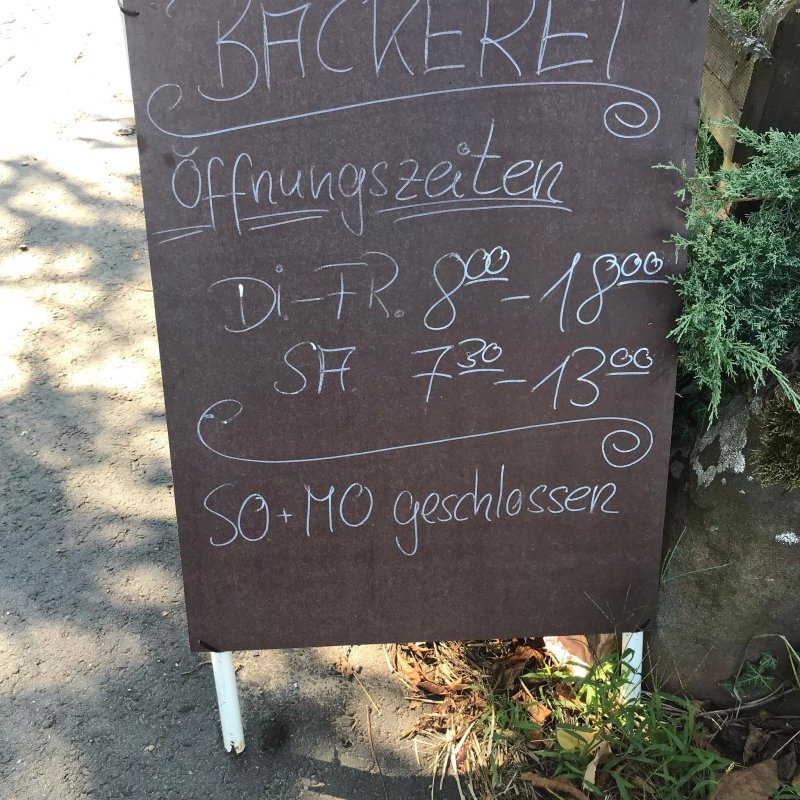 BÄCKEREI
Öffnungszeiten
Di-FR. 8⁰⁰ - 18⁰⁰
SA 7³⁰ - 13⁰⁰
SO + MO geschlossen